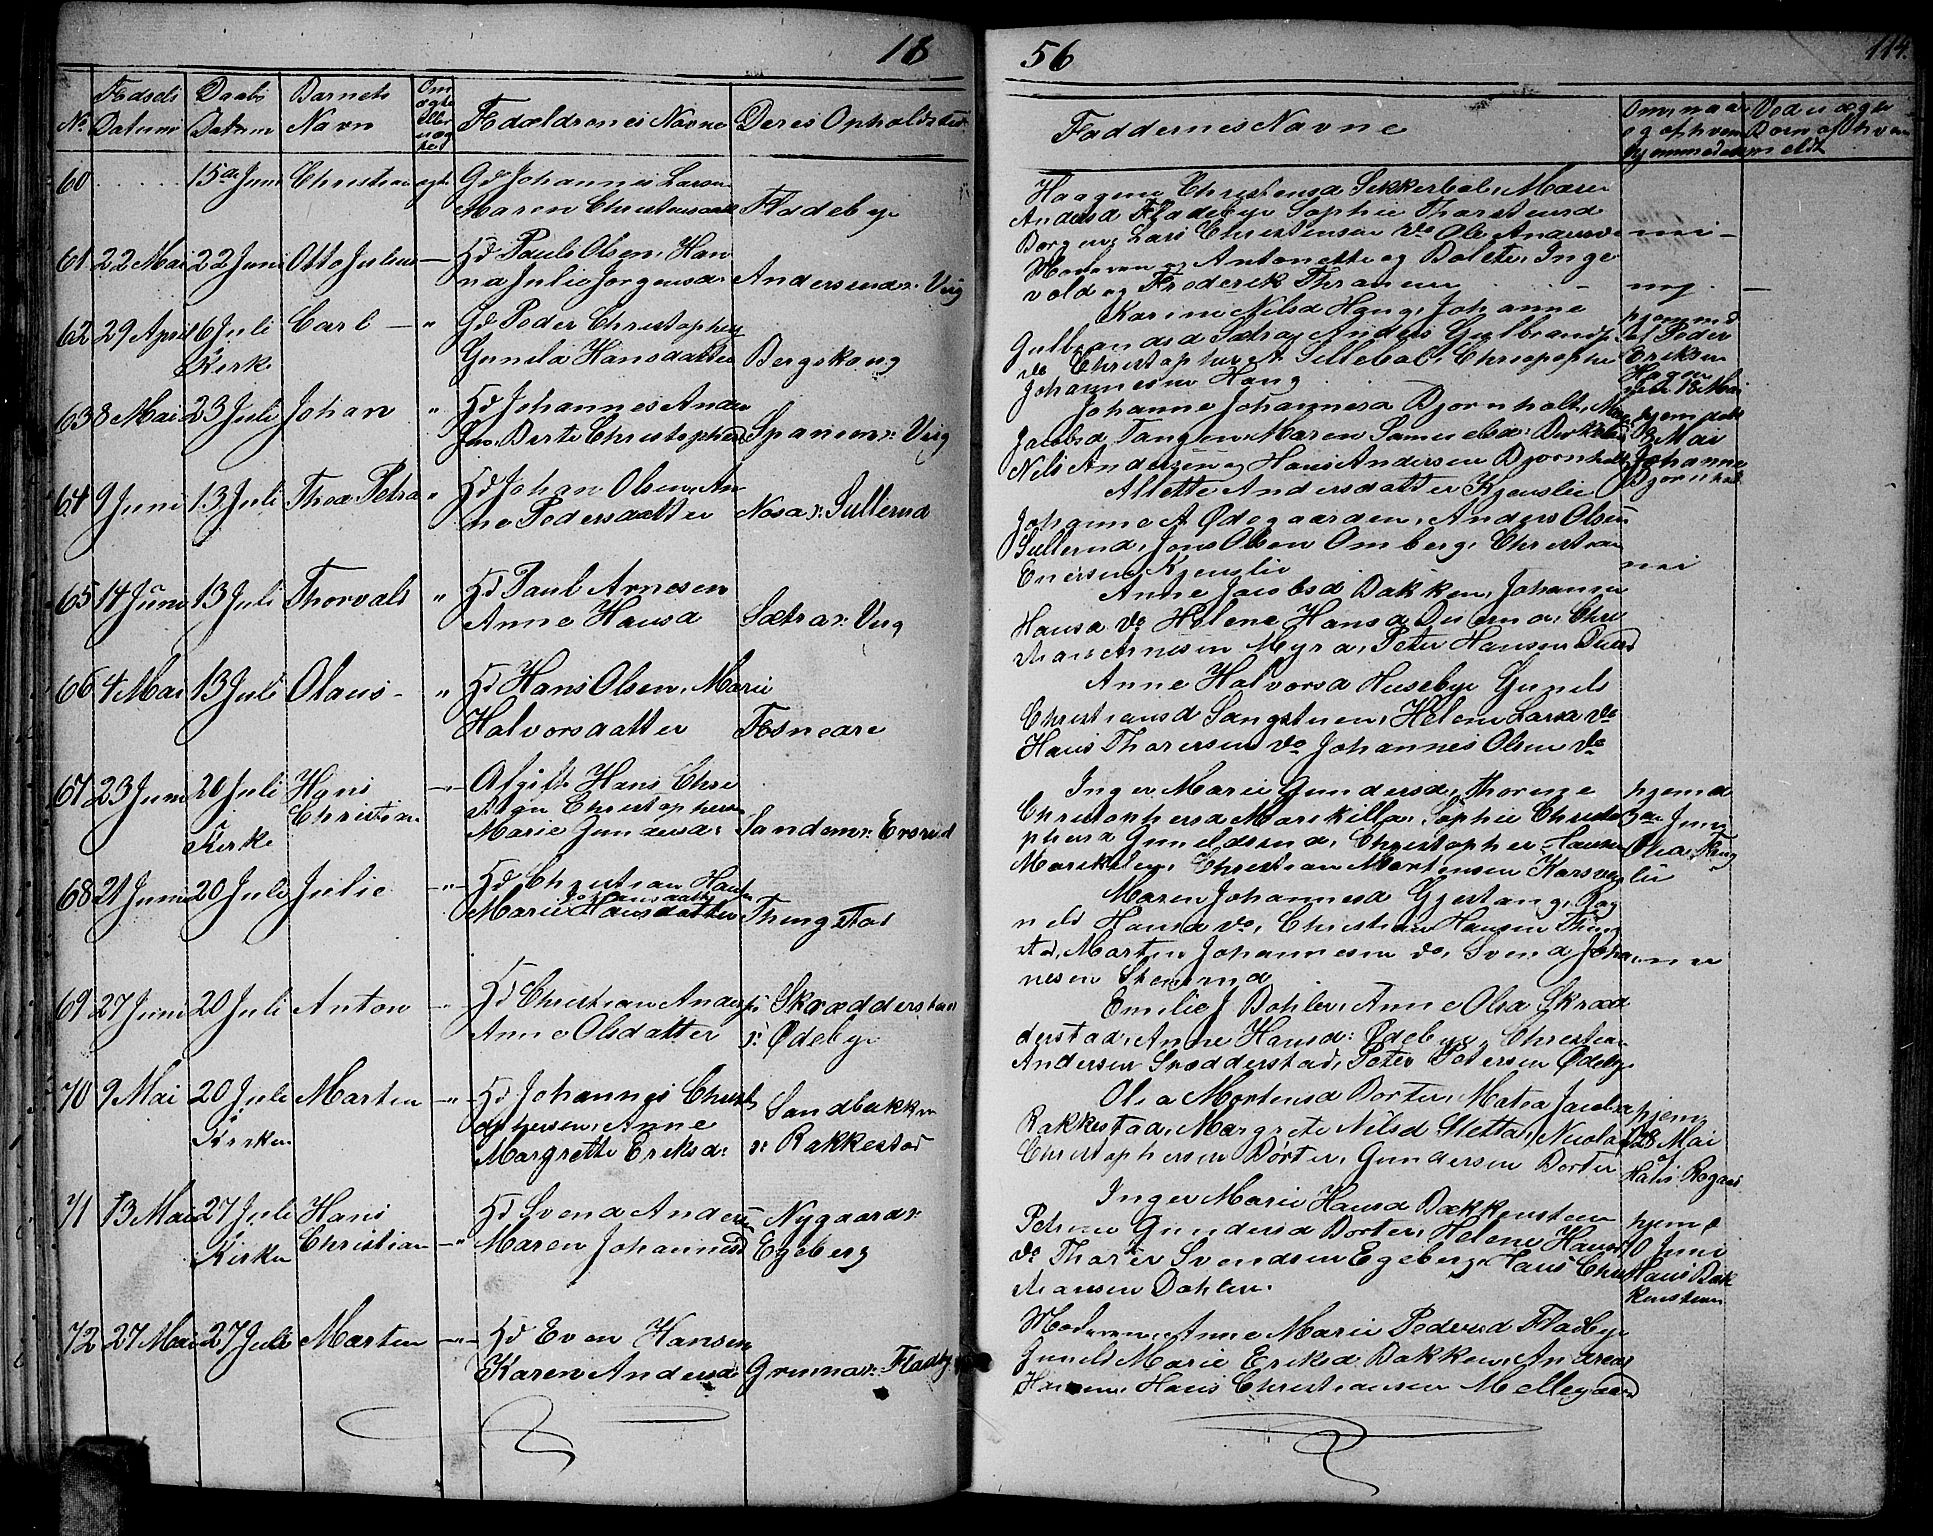 18
56
114.
No
Fødsels
Datum
Daabs
Datum
Barnets
Navn
Om
ægte
eller
uæg
te
Foældrenes Navne
Deres Opholdsted
Faddernes Navne
Om, naar
og af hvem
hjemmedøm
Ved uægte
Børn af hvem
meldt
60 15de Juni Christian egte Gd Johannes Larsen
Maren Christensdatter Fladebye
Haagene Christensd Sikkerbøl, Maren
Andersd Fladebye Sophie Thorstensd
Borgen, Lars Christensen do Ole Andersen do nei
61 22 Mai 22 Juni Otto Julius — Hd Paul Olsen, Han
na Julie Jørgensd: Andersrud v: Viig
Moderen og Antonette og Bolette, Inge
vold og Frederik Thranem nej —
62 29 April 6 Juli Carl — " Gd Peder Christophers
Kirke Gunild Hansdatter Bergskoug
Karine Nilsd Haug, Johanne
Gulbrandsd Sætra, Anders Gulbrands
do Christopher A. Sillebøl, Christophe
Johannesen Haug
hjemmed
af Peder
Eriksen
Hagen
ved 18 Mai
63 8 Mai 23 Juli Johan " Hd Johannes Ander
sen, Berte Christophersd Spanen v: Viig
Johanne Johannesd Bjørnholt, Mar
Jacobsd Tangen, Maren Samuelsd:
Nils Andersen og Hans Andersen Bjørnholt
hjem døbt
8 Mai
Johanne
Bjørnholt
64 9 Juni 13 Juli Thea Petra " Hd Johan Olsen, An
ne Pedersdatter Næsa v: Sullerud
Allette Andersdatter Kjenslie
Johanne A. Ødegaarden, Anders Olsen
Sullerud, Jens Olsen Omberg, Christian
Enersen Kjenslie nei
65 14 Juni 13 Juli Thorvald " Hd Paul Arnesen
Anne Hansd Sætra v: Viig
Anne Jacobsd Bakken, Johanne
Hansd do Helene Hansd Duerud, Chri
stian Arnesen Myra, Peter Hansen Duerud
66 4 Mai 13 Juli Olaus — " Hd Hans Olsen, Marie
Halvorsdatter Fosneøre
Anne Halvorsd Husebye Gunild
Christiansd Sangstuen, Helene Larsd do
Hans Thoresen do Johannes Olsen do
67 23 Juni 20 Juli Hans —"— Afgift Hans Chri
Kirke Christian stian Christophersen
Marie Gundersd: Sanden v: Evsrud
Inger Marie Gundersd, Thorine
Christophersd Marikilla, Sophie Christo
phersd Gunildsrud, Christopher Hansen
Marikilen, Christian Mortensen Karsveglie
hjemd
3die Juni
Olea
68 21 Juni 20 Juli Julie —"— Hd Christian Hans
Johansdatt
Marie Hansdatter Thingstad
Maren Johannesd Gjestang, Rag
nild Hansd do, Christian Hansen Thing
stad, Martin Johannesen do, Svend Johan
nesen Stensrud nei
69 27 Juni 20 Juli Anton —"— Hd Christian Anders v: Skrædderstad
Anne Olsdatter v: Ødebye
Emilie J Dahler, Anne Olsd Skræd
derstad, Anne Hansd: Ødebye, Christian
Andersen Skrædderstad, Peter Petersen Ødebye
70 9 Mai 20 Juli Marten —"— Hd Johannes Christ
Kirken ophersen, Anne Sandbakken
Margrette Eriksd: v: Rakkestad
Olea Mortensd Dorter, Matea Jacobsd
Rakkestad, Margrete Nilsd Sletta, Nicolai
Christophersen Dorter, Gundersen Dorter
hjem
28 Mai
af
Hans Rogaas
71 13 Mai 27 Juli Hans Hd Svend Anders Nygaard v:
Kirken Christian —"— Maren Johannesd Egeberg
Inger Marie Hansd Bækkensteen
Petrine Gundersd Dorter, Helene Hansd
do Thorer Svendsen Egeberg, Hans Chri
stiansen Dahlen.
hjemd
10 Juni
Hans Bæk
kensteen
72 27 Mai 27 Juli Marten —"— Hd Even Hansen
Karen Andersd Grinna v: Fladby
Moderen, Anne Marie Pedersd Fladbye
Gunild Marie Eriksd Bakken, Andreas
Hansen, Hans Christiansen Mellegaard